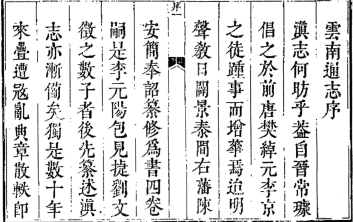 雲南通志序
滇志何昉乎葢自晉常璩
倡之於前唐樊綽元李京
之徒踵事而增華焉迨明
聲敎日闢景泰間右藩陳
安簡奉詔纂修為書四卷
嗣是李元陽包見捷劉文
徵之數子者後先纂述滇
志亦漸備矣獨是數十年
來疊遭寇亂典章散軼印